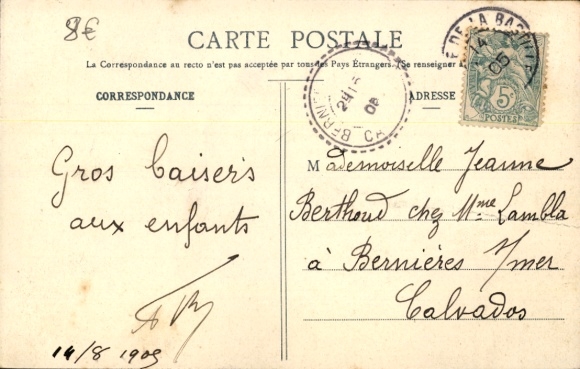 8€
CARTE POSTALE
La Correspondance au recto n'est pas acceptée par tous les Pays Étrangers. (Se renseigner à
CORRESPONDANCE
ADRESSE
DE LA BAS
14
05
5c
POSTES
BERNI
CA
05
Gros baisers
aux enfants
14/8 1905
Mademoiselle Jeanne
Berthoud chez Mme Lambla
à Bernières s/mer
Calvados